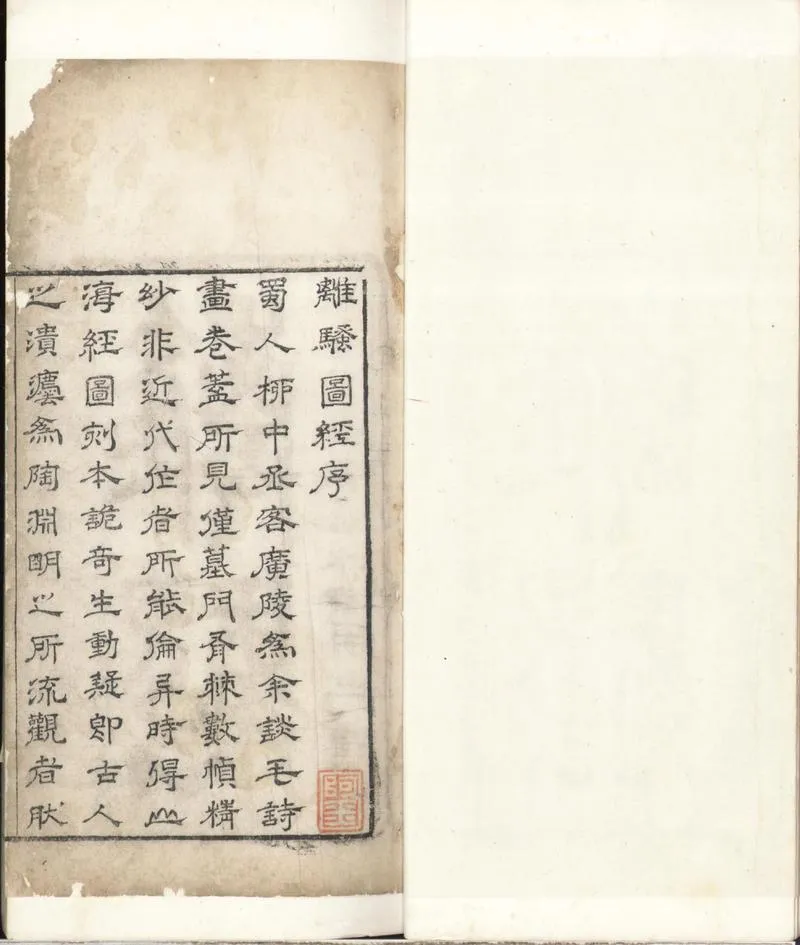 離騷圖經序
蜀人桺中丞客廣陵爲余談毛詩
畫卷蓋所見僅墓門有棘數幀精
紗非近代作者所能倫异時得山
海經圖刻本詭奇生動疑即古人
之潰爲陶淵明之所流觀者肰
阿英